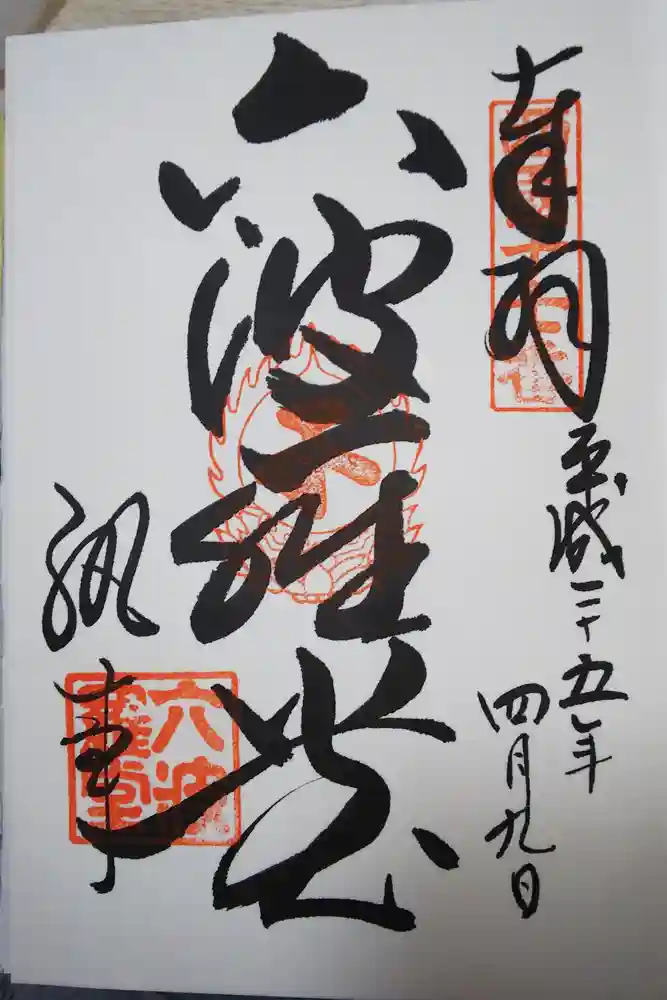 奉拝
平成二十五年
四月九日
六波羅堂
執事
六波
羅堂